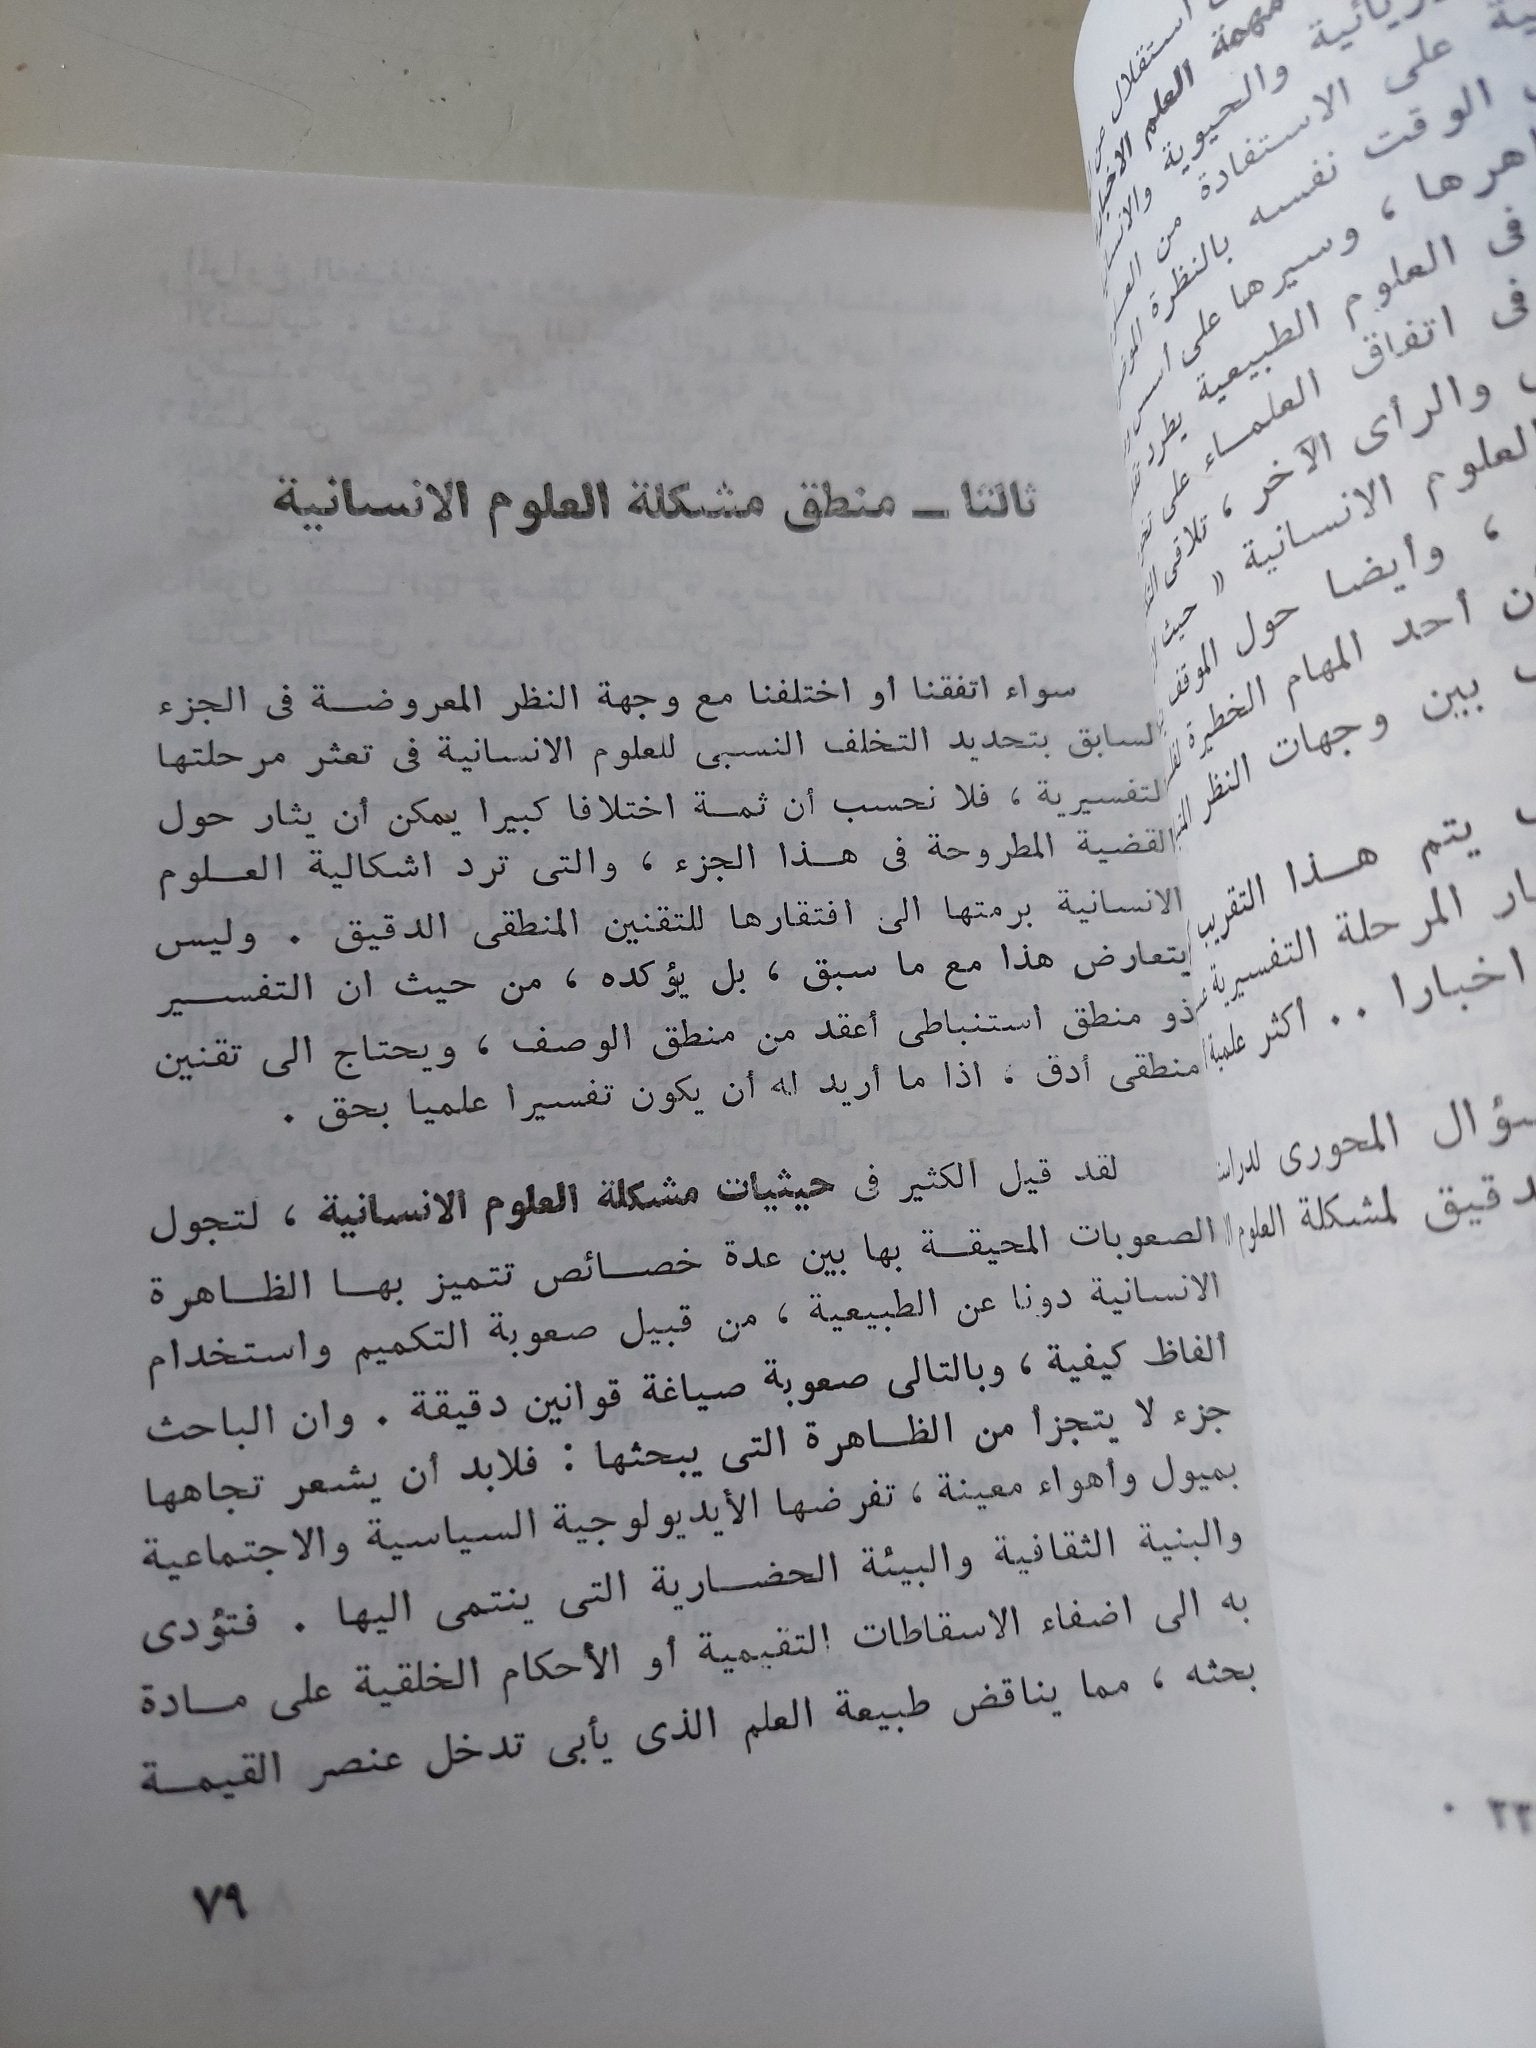 ثالثا ـ منطق مشكلة العلوم الانسانية
سواء اتفقنا أو اختلفنا مع وجهة النظر المعروضة فى الجزء
السابق بتحديد التخلف النسبى للعلوم الانسانية فى تعثر مرحلتها
التفسيرية ، فلا نحسب أن ثمة اختلافا كبيرا يمكن أن يثار حول
القضية المطروحة فى هذا الجزء ، والتى ترد اشكالية العلوم
الانسانية برمتها الى افتقارها للتقنين المنطقى الدقيق . وليس
يتعارض هذا مع ما سبق ، بل يؤكده ، من حيث ان التفسير
ذو منطق استنباطى أعقد من منطق الوصف ، ويحتاج الى تقنين
منطقى أدق ، اذا ما أريد له أن يكون تفسيرا علميا بحق .
لقد قيل الكثير فى حيثيات مشكلة العلوم الانسانية ، لتجول
الصعوبات المحيقة بها بين عدة خصائص تتميز بها الظاهرة
الانسانية دونا عن الطبيعية ، من قبيل صعوبة التكميم واستخدام
ألفاظ كيفية ، وبالتالى صعوبة صياغة قوانين دقيقة . وان الباحث
جزء لا يتجزأ من الظاهرة التى يبحثها : فلابد أن يشعر تجاهها
بميول وأهواء معينة ، تفرضها الأيديولوجية السياسية والاجتماعية
والبنية الثقافية والبيئة الحضارية التى ينتمى اليها . فتؤدى
به الى اضفاء الاسقاطات التقيمية أو الأحكام الخلقية على مادة
بحثه ، مما يناقض طبيعة العلم الذى يأبى تدخل عنصر القيمة
٧٩
استقلال
مهمة العلم
والحيوية
على الاستفادة من
الوقت نفسه بالنظرة
وسيرها على أسس
فى العلوم الطبيعية يطرد
فى اتفاق العلماء على
والرأى الآخر ، تلاقى
العلوم الانسانية « حيث
، وأيضا حول الموقف
أحد المهام الخطيرة
بين وجهات النظر
يتم هذا التقريب
المرحلة التفسيرية
اخبارا .. أكثر علمية
المحورى
لمشكلة العلوم